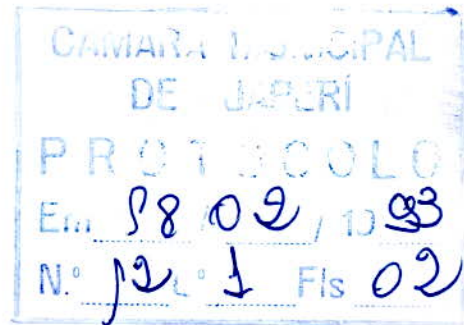 CÂMARA MUNICIPAL
DE JAPERÍ
PROTOCOLO
Em 18 / 02 / 1993
N.º 12 L.º 1 Fls 02